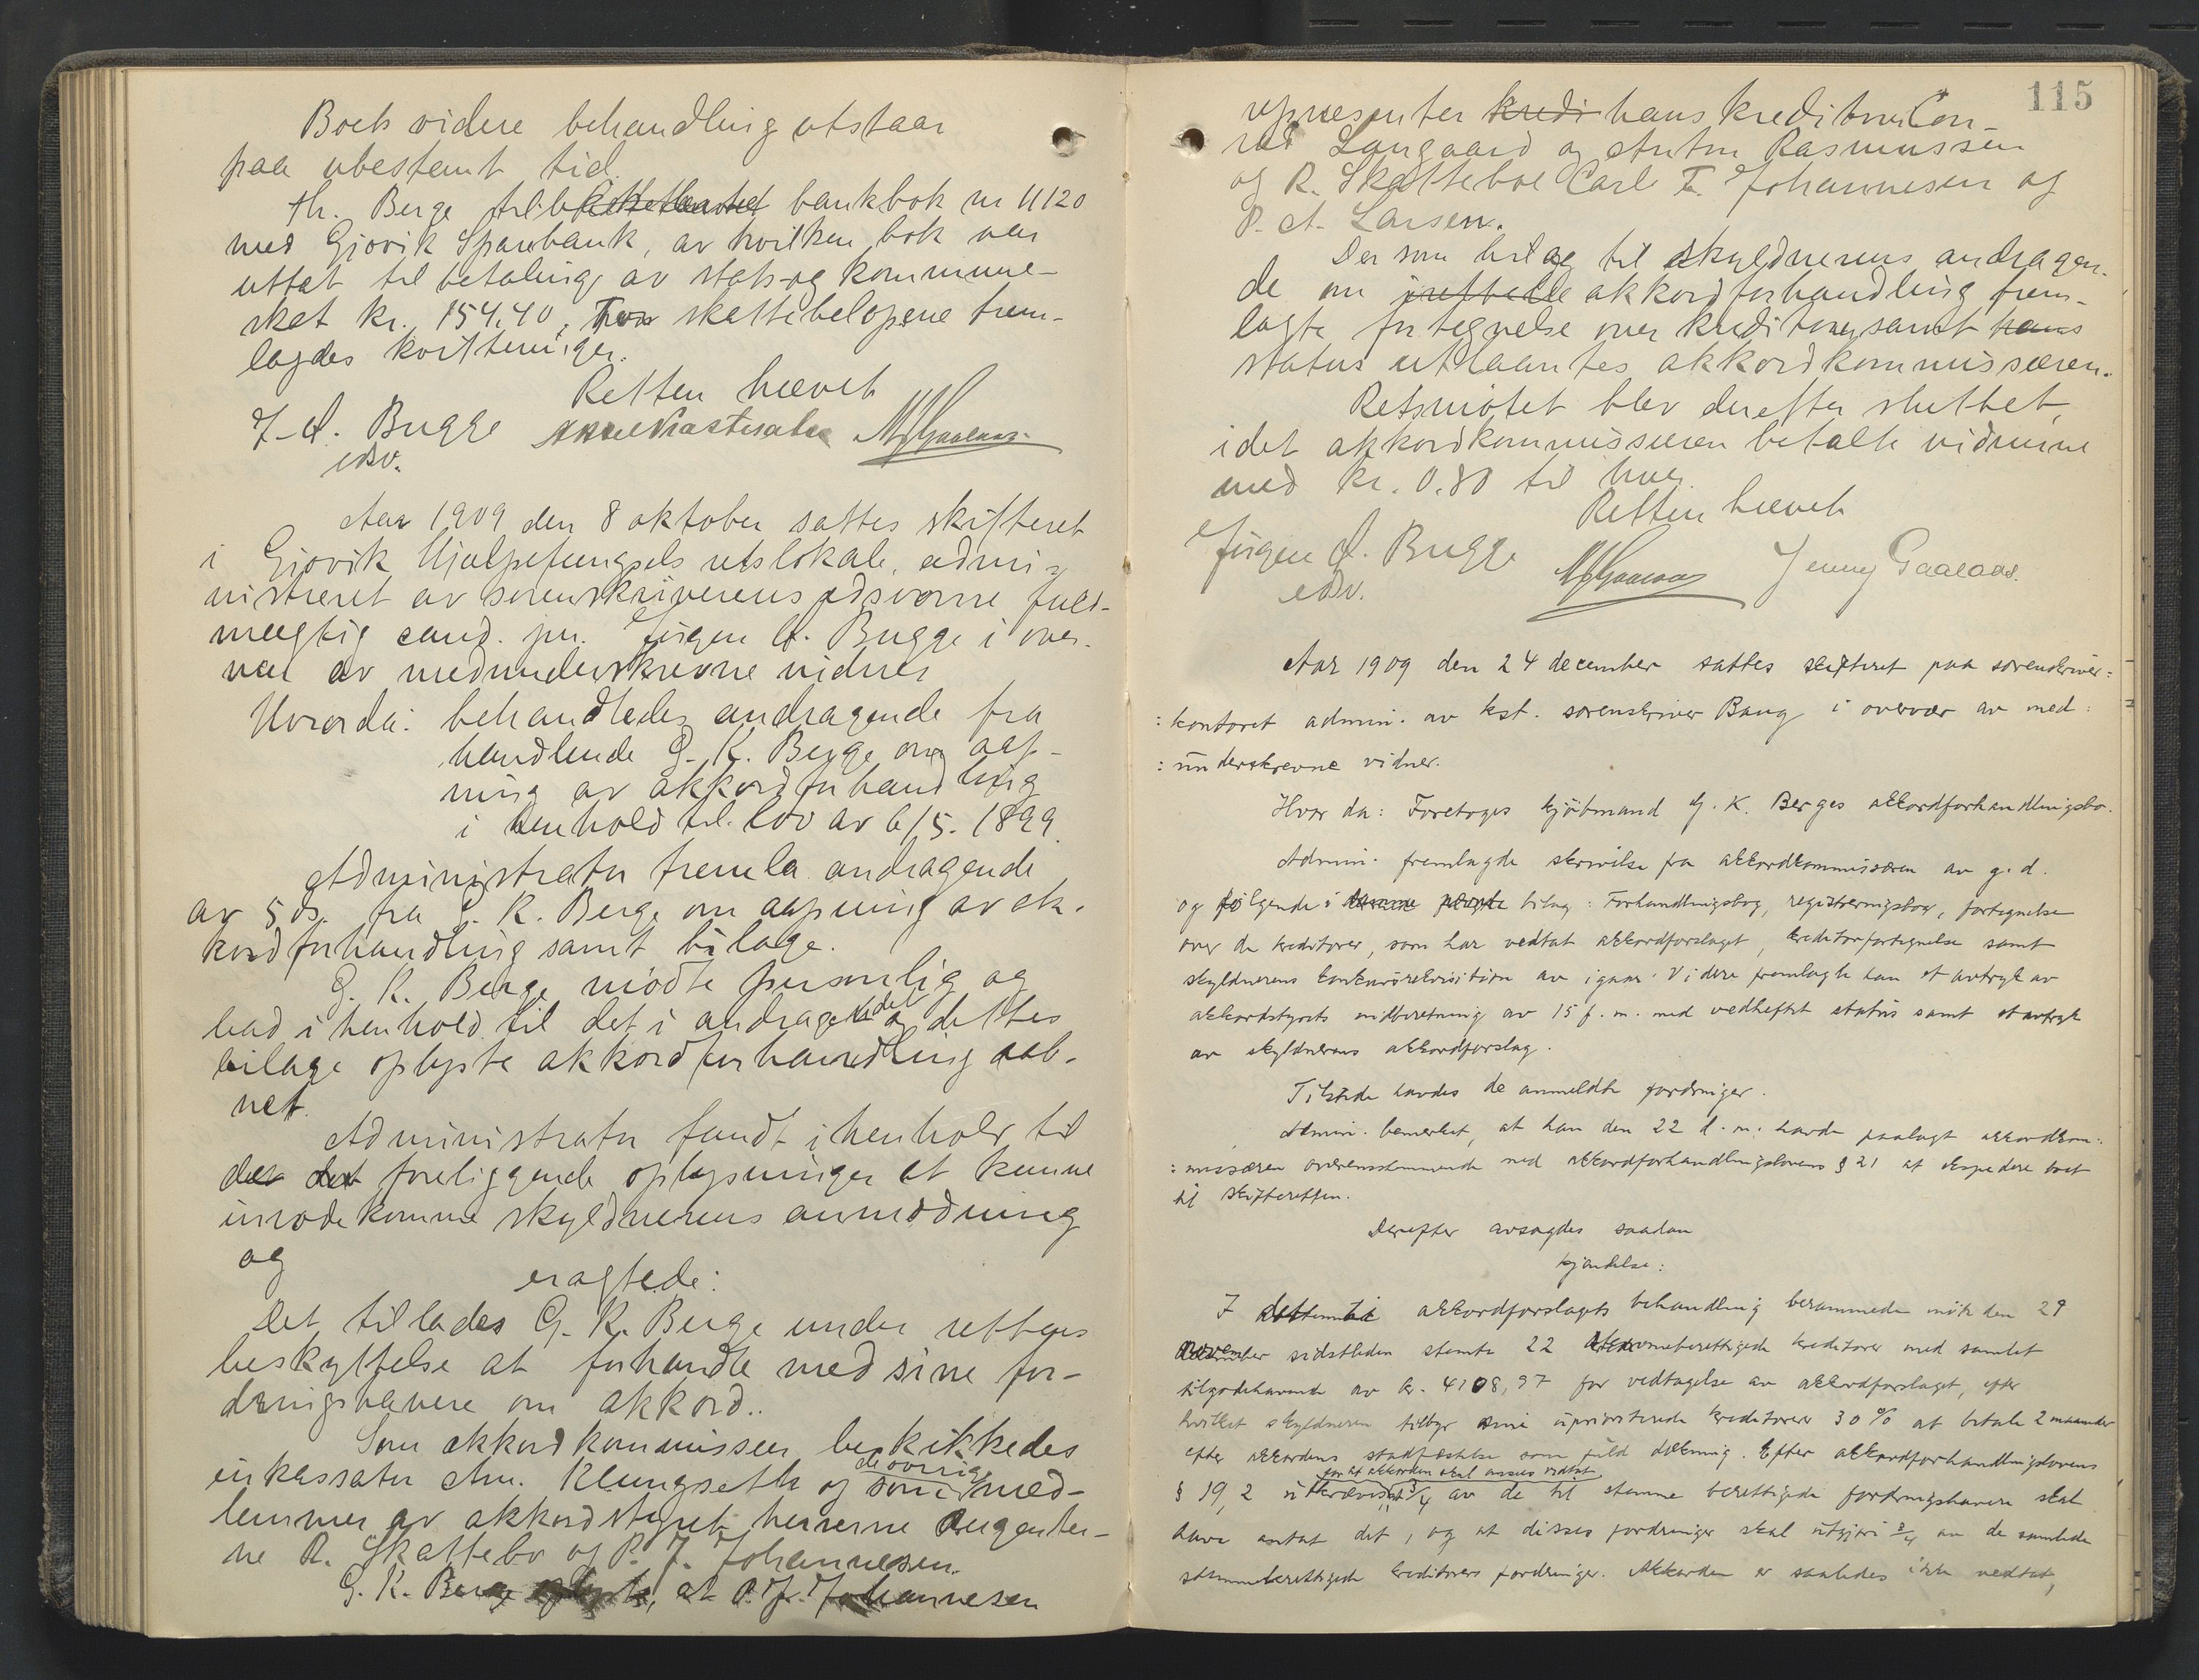 Boets videre behandling utstaar
paa ubestemt tid.
Hr. Berge bankbok nr 11120
med Gjøvik Sparebank, av hvilken bok var
uttat til betaling av stats- og kommune-
skat kr. 154,40, For skattebeløpene frem-
lagdes kvitteringer.
Retten hævet
J. A. Bugge
edsv.
Aar 1909 den 8 oktober sattes skifteret
i Gjøvik Hjælpefængsels retslokale, admi-
nistreret av sorenskriverens edsvorne fuld-
mægtig cand. jur. Jørgen A. Bugge i over-
vær av medunderskrevne vidner
Hvorda: behandledes andragende fra
handlende G. K. Berge om aap-
ning av akkordforhandling
i henhold til lov av 6/5. 1899.
Administrator fremla andragende
av 5 ds. fra G. K. Berge om aapning av ak-
kordforhandling samt bilage.
G. K. Berge mødte personlig og
bad i henhold til det i andragendet og dettes
bilage oplyste akkordforhandling aab-
net.
Administrator fandt i henhold til
de foreliggende oplysninger at kunne
imøtekomme skyldnerens anmodning
og
eragtede:
Det tillades G. K. Berge under rettens
beskyttelse at forhandle med sine for-
dringshavere om akkord.
Som akkordkommissær beskikkedes
inkassator Am. Klungseth og som de øvrige med-
lemmer av akkordstyret herrerne Agenter-
ne R. Skattebo og P. J. Johannesen.
G. K. Berge oplyste, at P. J. Johannesen
115
representer kredi hans kreditorer Con-
rad Langaard og Anton Rasmussen
og R. Skattebo Carl F. Johannesen og
P. A. Larsen.
De som bilag til skyldnerens andragen-
de om akkordforhandling frem-
lagte fortegnelse over kreditorer samt hans
status utlaantes akkordkommissæren.
Retsmøtet blev derefter sluttet,
idet akkordkommissæren betalte vidnerne
med kr. 0.80 til hver.
Retten hævet
Jørgen A. Bugge
Jenny Gaalaas.
edsv.
Aar 1909 den 24 december sattes skifteret paa sorenskriver:
:kontoret admin. av kst. sorenskriver Bang i overvær av med:
:underskrevne vidner.
Hvor da: Foretoges kjøbmand G. K. Berges akkordforhandlingsbo.
Admin. fremlagde skrivelse fra akkordkommissæren av g. d.
og følgende i bilag: Forhandlingsbog, registreringsbog, fortegnelse
over de kreditorer, som har vedtat akkordforslaget, kreditorfortegnelse samt
skyldnerens konkursrekvisition av igaar. Videre fremlagde han et avtryk av
akkordstyrets indberetning av 15 f. m. med vedheftet status samt et avtryk
av skyldnerens akkordforslag.
Tilstede havdes de anmeldte fordringer.
Admin. bemerket, at han den 22 d. m. havde paalagt akkordkom:
:missæren overensstemmende med akkordforhandlingslovens § 21 at ekspedere boet
til skifteretten.
Derefter avsagdes saadan
kjendelse:
I akkordforslagets behandling berammede møte den 29
november sidstleden stemte 22 stemmeberettigede kreditorer med samlet
tilgodehavende av kr. 4108,97 for vedtagelse av akkordforslaget, efter
hvilket skyldneren tilbyr sine uprioriterede kreditorer 30 % at betale 2 maaneder
efter akkordens stadfæstelse som fuld dækning. Efter akkordforhandlingslovens
§ 19, 2 utkræves for at akkorden skal ansees vedtat at 3/4 av de til stemme berettigede fordringshavere skal
have antat det, og at disses fordringer skal utgjøre 3/4 av de samlede
stemmeberettigede kreditorers fordringer. Akkorden er saaledes ikke vedtat,